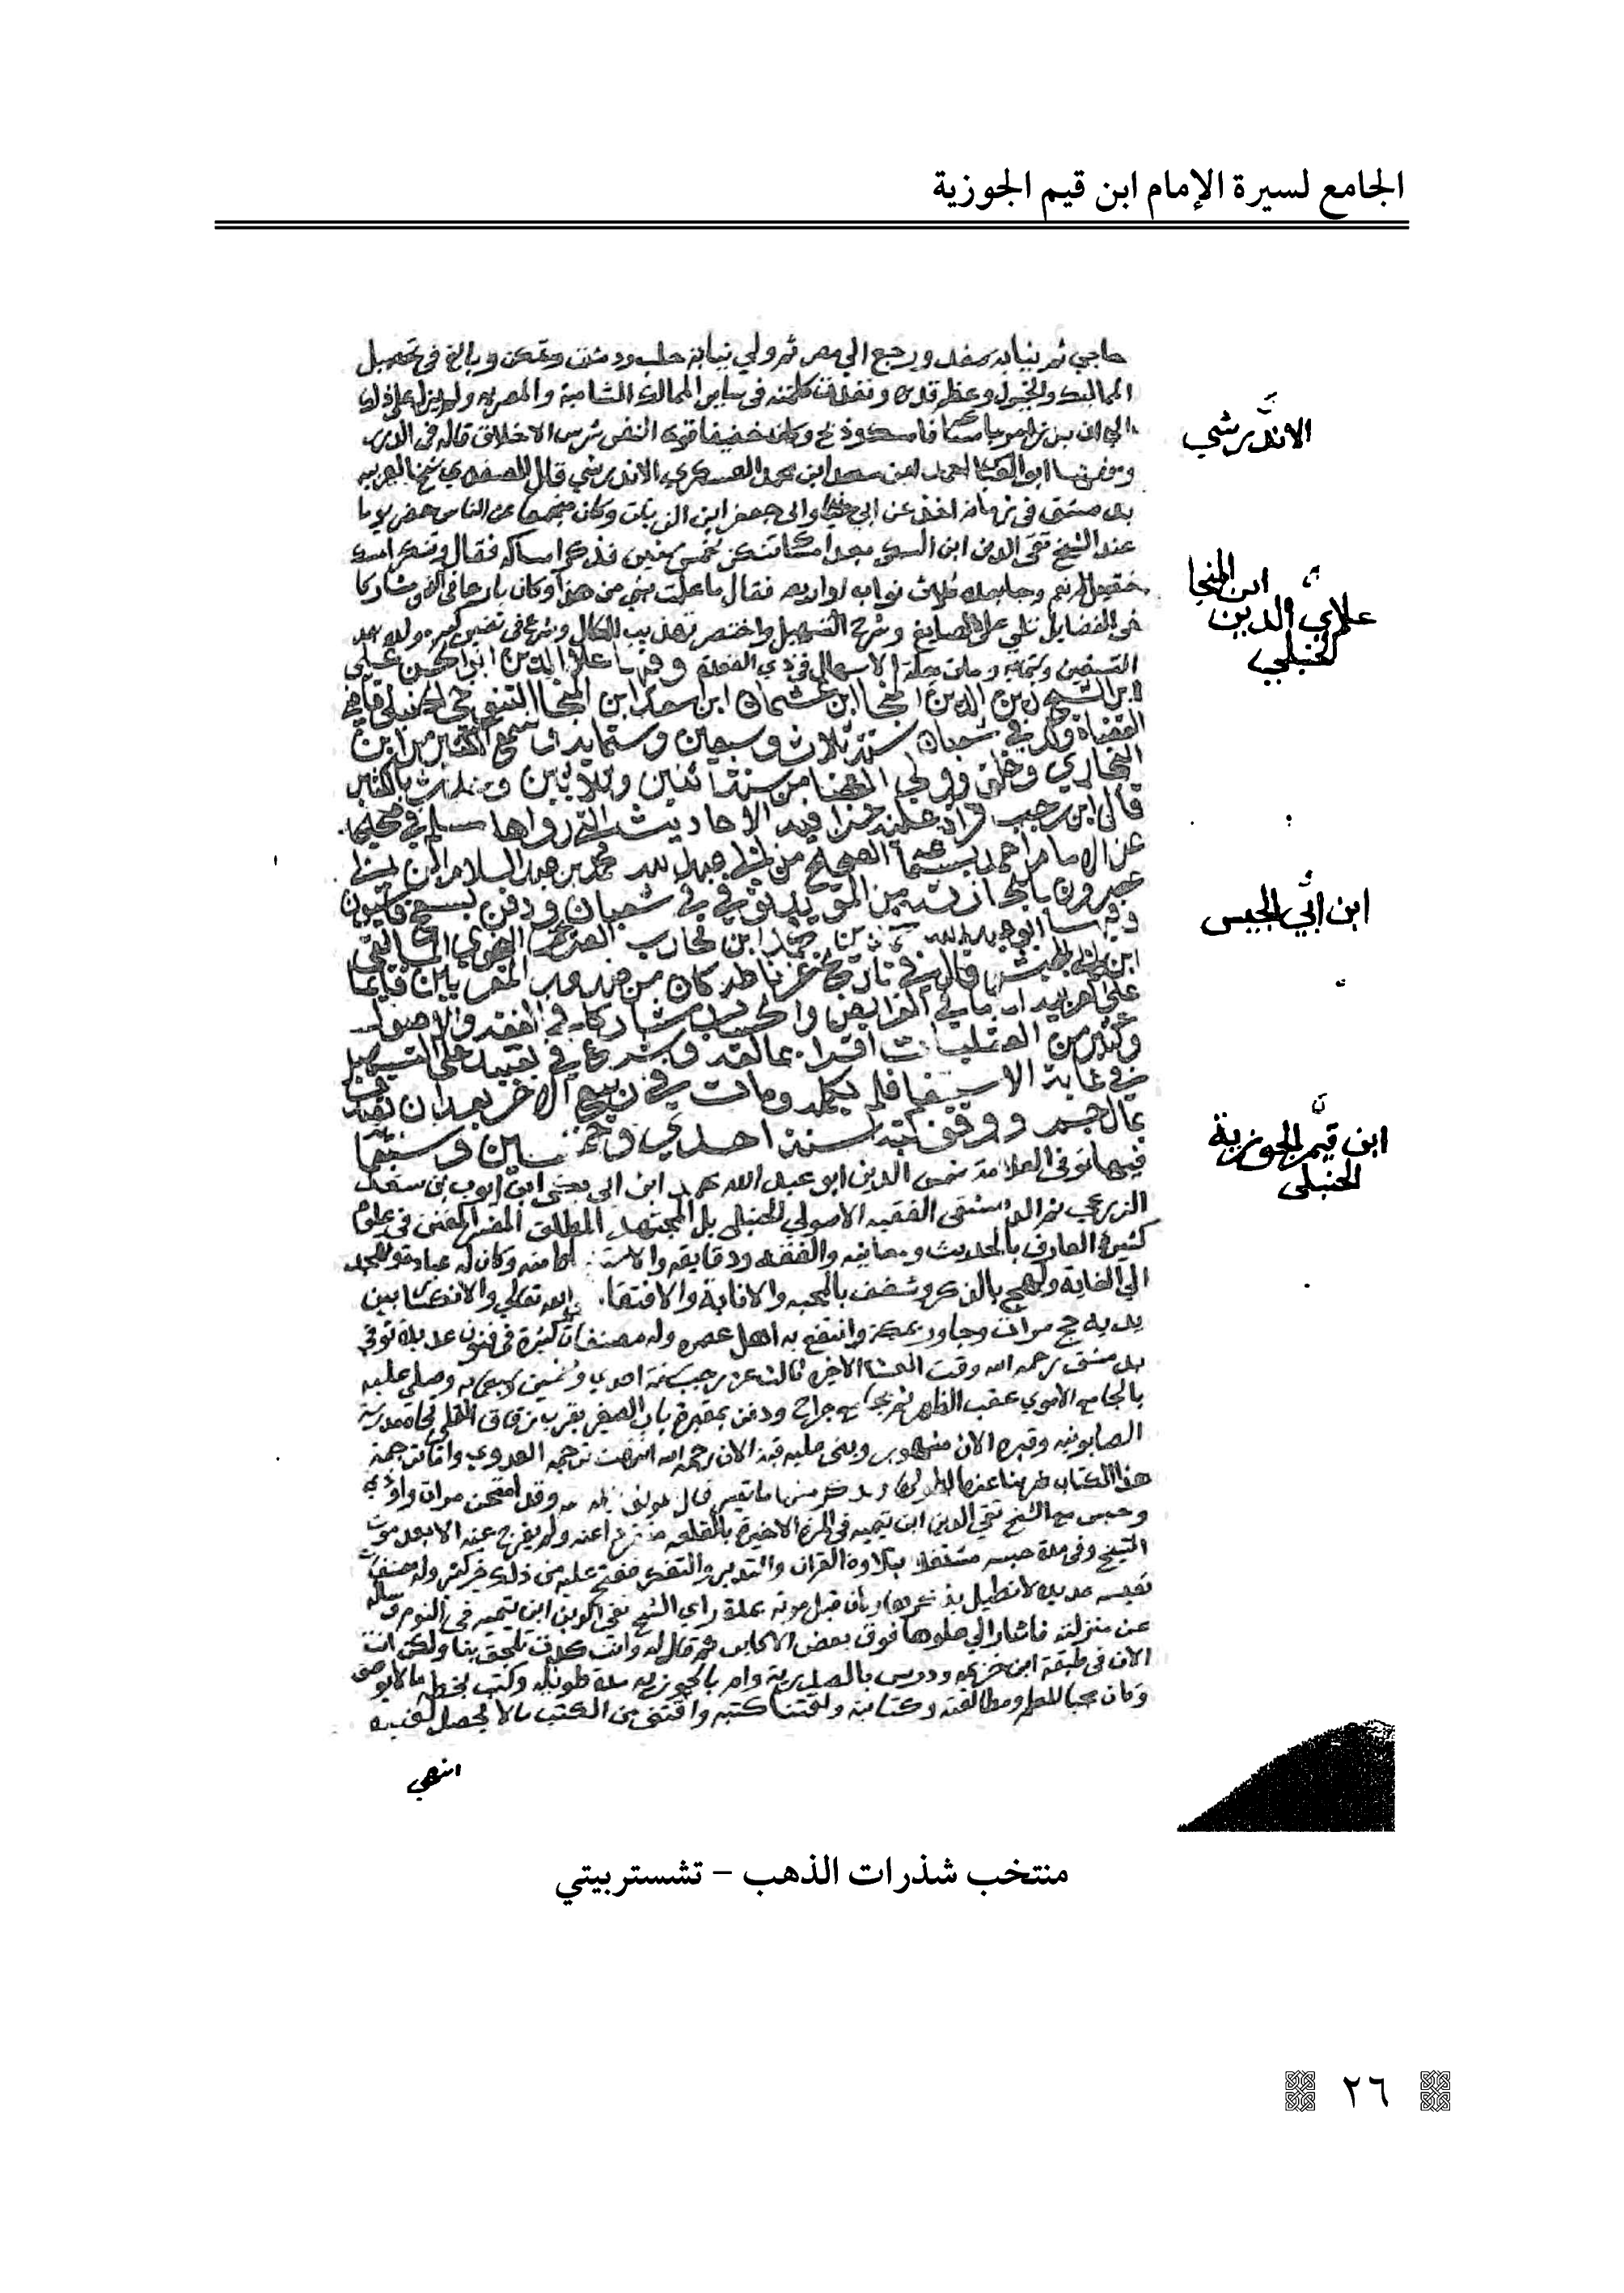 الجامع لسيرة الإمام ابن قيم الجوزية
حاجي ثم نيابة صفد ورجع الي مصر ثم ولي نيابة حلب ودمشق وتمكن وبالغ في تحصيل
المماليك والخيول وعظم قدره ونفذت كلمته في ساير الممالك الشامية والمصريه ولم يزل علي ذلك
وكان خفيفا قوي النفس شرس الاخلاق قاله في الدرر
الاندرشي
وفيها ابو العباس احمد ابن سعد ابن محمد العسكري الاندرشي قال الصفدي شيخ العربيه
بدمشق في زمانه اخذ عن ابي حيان وابي جعفر ابن الزيات وكان منجمعا عن الناس حضر يوما
عند الشيخ تقي الدين ابن السبكي بعد امساك تنكز بخمس سنين فذكر امساكه فقال وتنكز امسك
فقيل له نعم وجا بعده ثلاث نواب او اربعه فقال ما علمت بشي من هذا وكان بارعا في النحو مشاركا
في الفضايل تلي علي الصايغ وشرح التسهيل واختصر تهذيب الكمال وشرع في تفسير كبير ولد بعد
ابن المنجا
علاي الدين
الحنبلي
التسعين وستمايه ومات بعلة الاسهال في ذي القعدة وفيها علا الدين ابو الحسن علي
ابن الشيخ زين الدين المنجا ابن عثمان ابن اسعد ابن المنجا التنوخي الحنبلي قاضي
القضاة ولد في شعبان سنة ثلاث وسبعين وستمايه وسمع الكثير من ابن
البخاري وخلق وولي القضا من سنة اثنين وثلاثين وحدث بالكثير
قال ابن رجب قرات عليه جزا فيه الاحاديث التي رواها مسلم في صحيحه
عن الامام احمد بسماعه الصحيح من ابي عبد الله محمد بن عبد السلام ابن ابي
عصرون باجازته من المويد توفي في شعبان ودفن بسفح قاسيون
ابن ابي الجيس
وفيها ابو عبد الله محمد ابن محمد ابن محارب الصريحي النحوي المالقي
ابن ابي الجيش قال في تاريخ غرناطة كان من صدور المقريين قايما
علي العربيه اماما في الفرايض والحساب مشاركا في الفقه والاصول
وكثير من العقليات اقرا بمالقه وشرع في تقييد علي التسهيل
في غاية الاستيفا فلم يكمله ومات في ربيع الاخر بعد ان تصدق
بمال جم ووقف كتبه سنة احدي وخمسين وسبعماية
ابن قيم الجوزية
الحنبلي
فيها توفي العلامة شمس الدين ابو عبد الله محمد ابن ابي بكر ابن ايوب بن سعد
الزرعي ثم الدمشقي الفقيه الاصولي الحنبلي بل المجتهد المطلق المفسر المتفنن في علوم
كثيرة العارف بالحديث ومعانيه والفقه ودقايقه والاستنباط منه وكان له عباده وتهجد
الي الغاية ولهج بالذكر وشغف بالمحبه والانابة والافتقار الي الله تعالي والانكسار بين
يديه حج مرات وجاور بمكة وانتفع به اهل عصره وله مصنفات كثيرة في فنون عديدة توفي
بدمشق رحمه الله وقت العشا الاخره ثالث عشر رجب سنة احدي وخمسين وسبعمايه وصلي عليه
بالجامع الاموي عقب الظهر ثم بجامع جراح ودفن بمقبرة باب الصغير بقرب زقاق القلي تجاه مدرسة
الصابونيه وقبره الان مشهور وبني عليه قبة الان رحمه الله انتهت ترجمة العدوي واما ترجمة
هذا الكتاب ونذكر منها ما تيسر قال وقد امتحن مرات واوذي
وحبس مع الشيخ تقي الدين ابن تيميه في المرة الاخيرة بالقلعه منفردا عنه ولم يفرج عنه الا بعد موت
الشيخ وفي مدة حبسه مشتغلا بتلاوة القران والتدبر والتفكر ففتح عليه من ذلك خير كثير وله تصانيف
نفيسه عديده لا نطيل بذكرها وكان قبل موته بمدة راي الشيخ تقي الدين ابن تيميه في النوم وساله
عن منزلته فاشار الي علوها فوق بعض الاكابر ثم قال له وانت كدت تلحق بنا ولكن انت
الان في طبقة ابن خزيمه ودرس بالصدرية وام بالجوزيه مدة طويله وكتب بخطه ما لا يوصف
وكان محبا للعلم ومطالعته وكتابته واقتنا كتبه واقتني من الكتب ما لا يحصل لغيره
انتهي
منتخب شذرات الذهب – تشستربيتي
٢٦